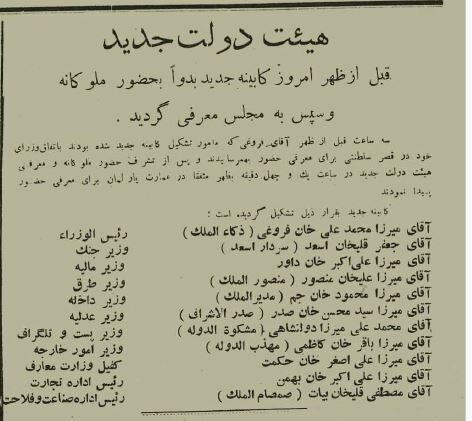 هیئت دولت جدید
قبل از ظهر امروز کابینه جدید بدواً بحضور ملوکانه
وسپس به مجلس معرفی گردید .
سه ساعت قبل از ظهر آقای فروغی که مامور تشکیل کابینه جدید شده بودند باتفاق وزرای
خود در قصر سلطنتی برای معرفی حضور بهمرسانیدند و پس از تشرف حضور ملوکانه و معرفی
هیئت دولت جدید در ساعت یك و چهل دقیقه بظهر متفقا در عمارت پارلمان برای معرفی حضور
پیدا نمودند
کابینه جدید بقرار ذیل تشکیل گردیده است :
آقای میرزا محمد علی خان فروغی ( ذکاء الملك ) رئیس الوزراء
آقای جعفر قلیخان اسعد ( سردار اسعد ) وزیر جنك
آقای میرزا علی اکبر خان داور وزیر مالیه
آقای میرزا علیخان منصور ( منصور الملك ) وزیر طرق
آقای میرزا محمود خان جم ( مدیر الملك ) وزیر داخله
آقای میرزا سید محسن خان صدر ( صدر الاشراف ) وزیر عدلیه
آقای محمد علی میرزا دولتشاهی ( مشکوة الدوله ) وزیر پست و تلگراف
آقای میرزا باقر خان کاظمی ( مهذب الدوله ) وزیر امور خارجه
آقای میرزا علی اصغر خان حکمت کفیل وزارت معارف
آقای میرزا علی اکبر خان بهمن رئیس اداره تجارت
آقای مصطفی قلیخان بیات ( صمصام الملك ) رئیس اداره صناعت و فلاحت